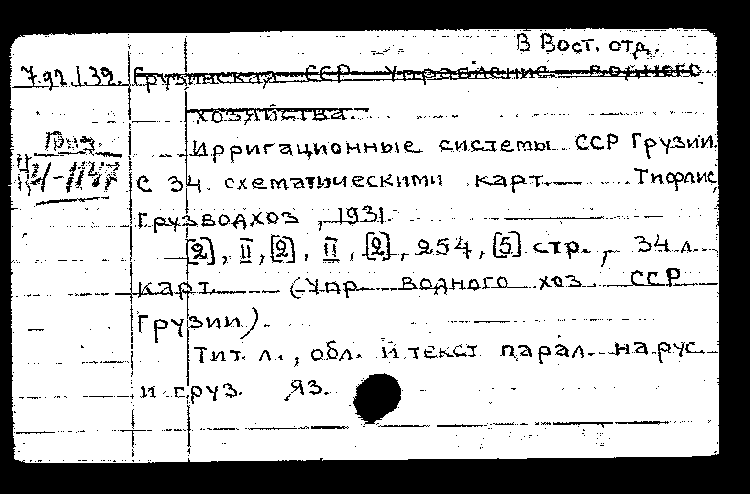 В Вост. отд.
7.92.132. Грузинская ССР Управление водного
хозяйства.
Ирригационные системы ССР Грузии
с 34 схематическими карт. Тифлис,
Грузводхоз, 1931.
[2], II, [2], II, [2], 254, [5] стр., 34 л.
карт. (Упр. водного хоз. ССР
Грузии).
Тит. л., обл. и текст парал. на рус.
и груз. яз.